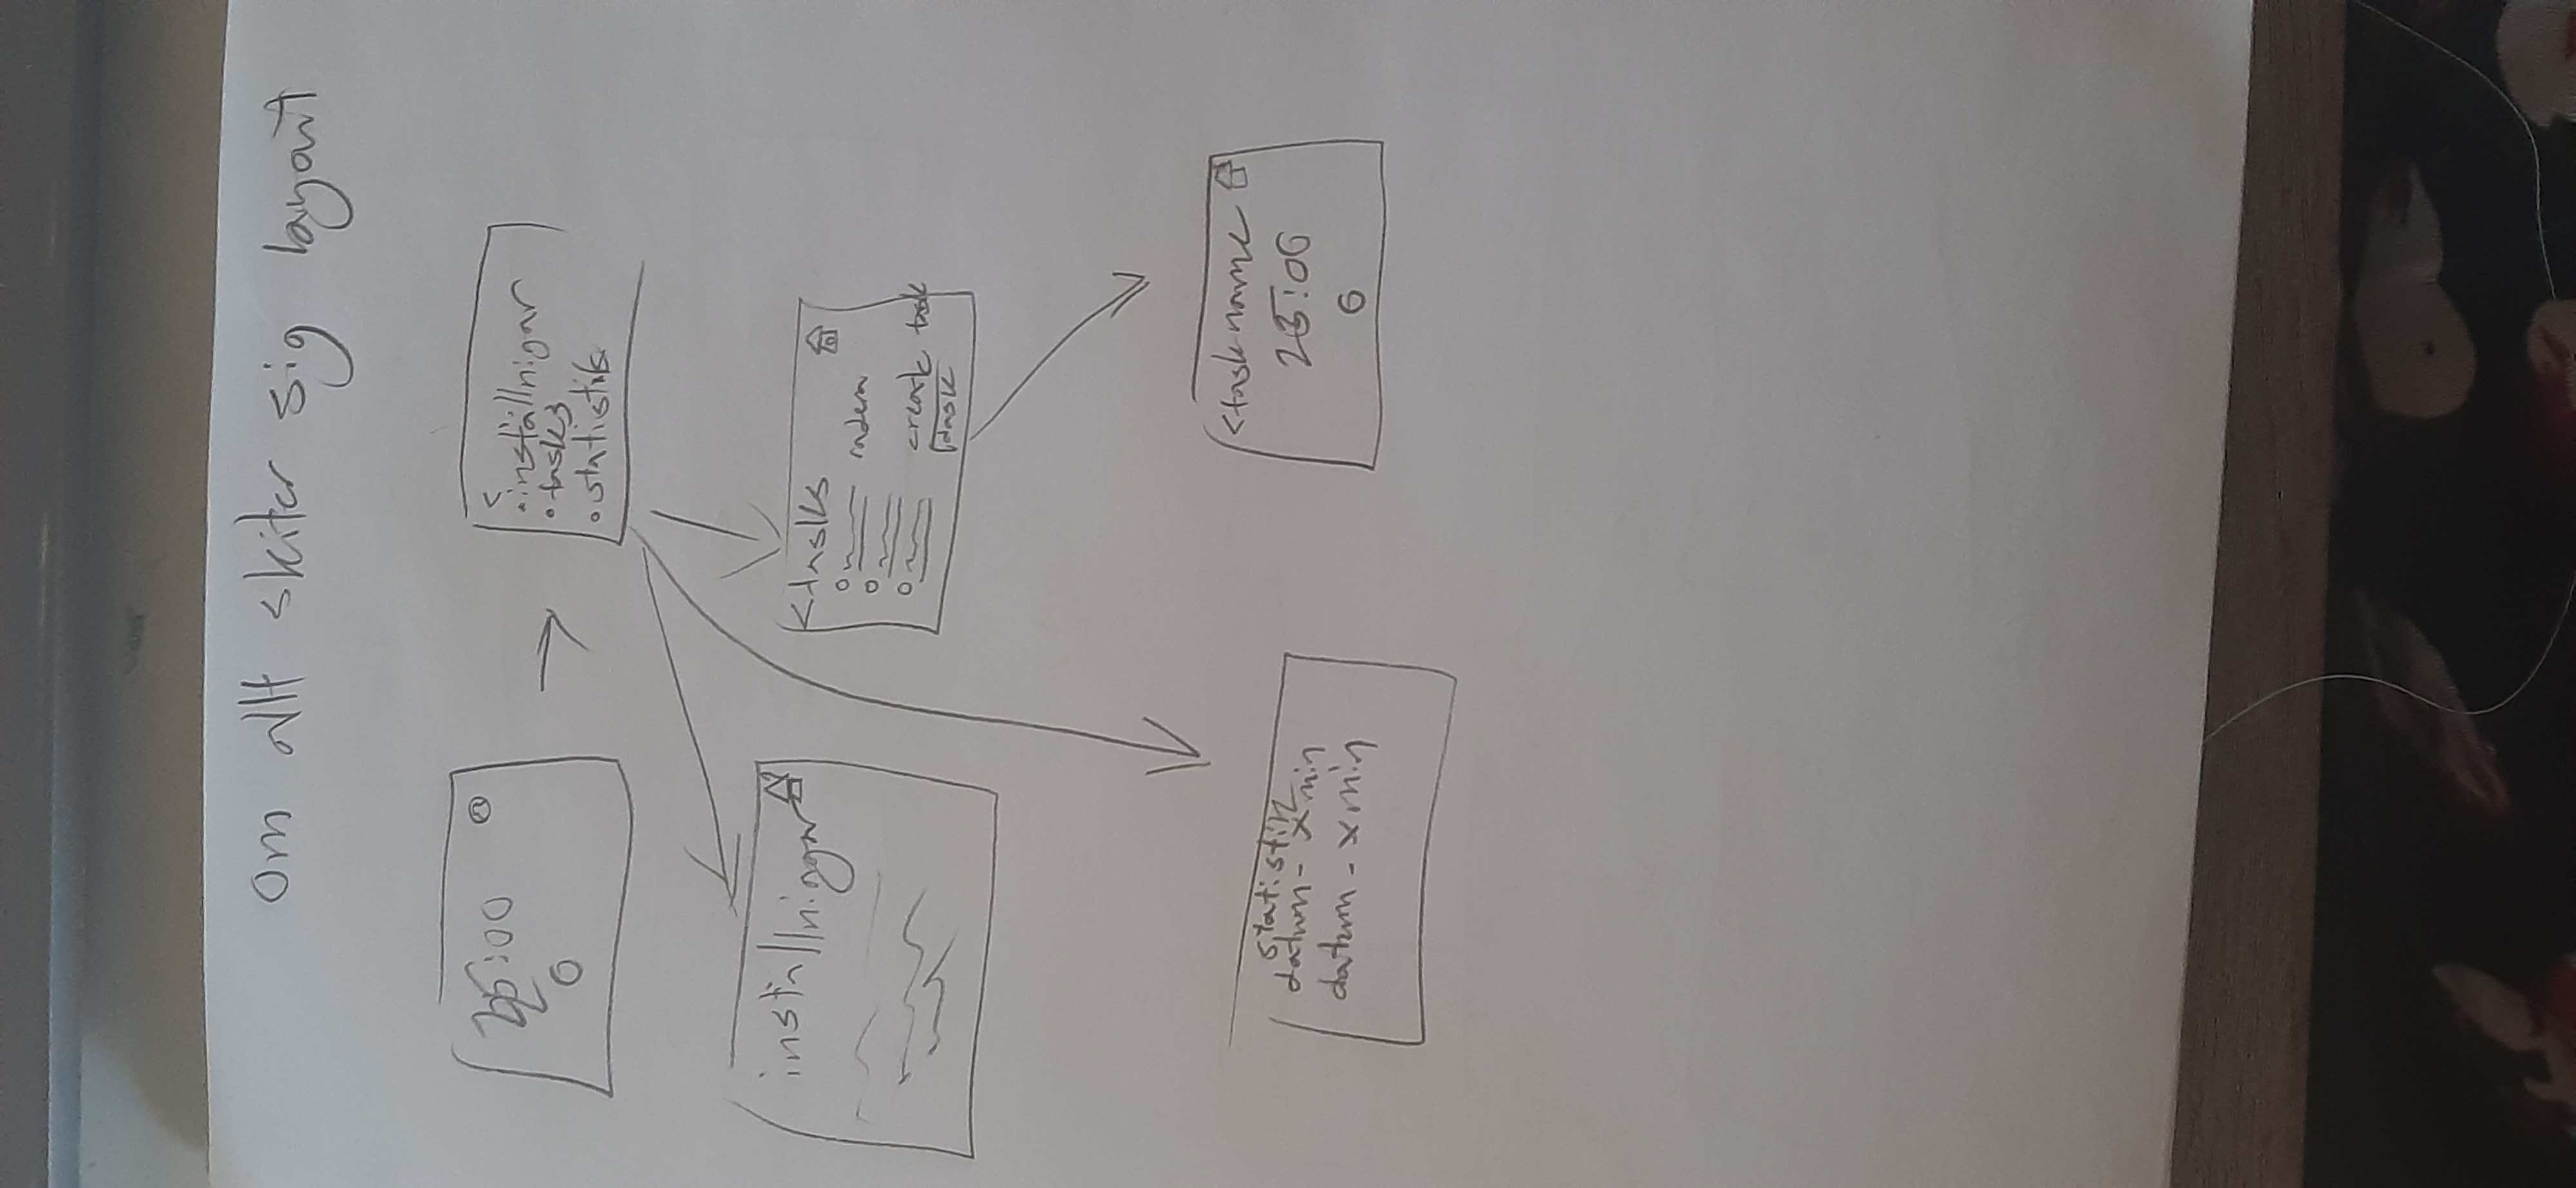 om allt skiter sig layout
25:00
<
inställnigar
tasks
statistik
inställnigar
<tasks
create task
task
statistik
datum - x min
datum - x min
<task name
25:00